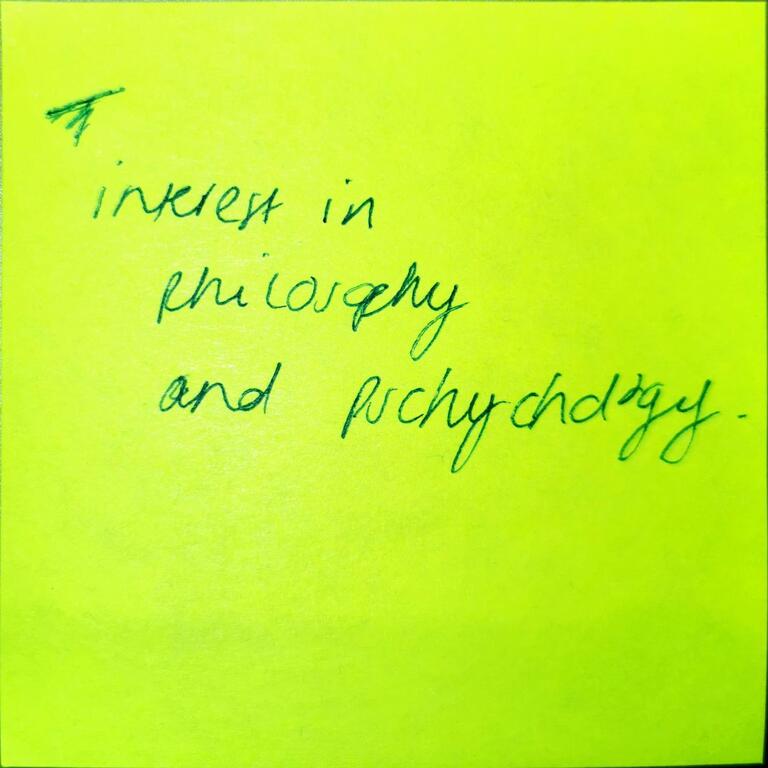 interest in
philosophy
and puchychology.